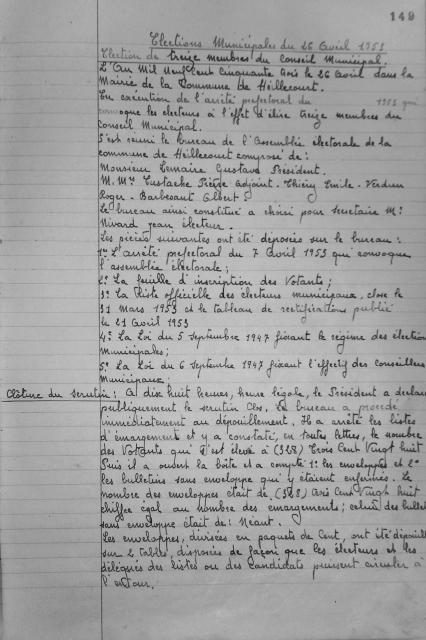 149
Elections Municipales du 26 Avril 1953
Election de treize membres du Conseil Municipal.
L'An Mil Neuf Cent Cinquante trois le 26 Avril dans la
Mairie de la Commune de Heillecourt.
En exécution de l'arrêté préfectoral du 1953 qui
convoque les électeurs à l'effet d'élire treize membres du
Conseil Municipal.
S'est réuni le bureau de l'Assemblée électorale de la
commune de Heillecourt composé de :
Monsieur Lemaire Gustave Président.
M. Mrs Eustache Adjoint. Thiéry Emile - Verdun
Roger - Barbesant Albert.
Le bureau ainsi constitué a choisi pour secrétaire Mr
Nivard Jean électeur.
Les pièces suivantes ont été déposées sur le bureau :
1° L'arrêté préfectoral du 7 Avril 1953 qui convoque
l'assemblée électorale ;
2° La feuille d'inscription des Votants ;
3° La liste officielle des électeurs municipaux, close le
31 Mars 1953 et le tableau de rectifications publié
le 21 Avril 1953
4° La Loi du 5 Septembre 1947 fixant le régime des élections
Municipales ;
5° La Loi du 6 Septembre 1947 fixant l'effectif des Conseillers
Municipaux.
Clôture du scrutin : A dix huit heures, heure légale, le Président a déclaré
publiquement le scrutin Clos. Le bureau a procédé
immédiatement au dépouillement. Il a arrêté les listes
d'émargement et y a constaté, en toutes lettres, le nombre
des Votants qui s'est élevé à (328) Trois Cent Vingt huit
Puis il a ouvert la boîte et a compté 1° les enveloppes et 2°
les bulletins sans enveloppe qui y étaient enfermés. Le
nombre des enveloppes était de (328) trois Cent Vingt huit
chiffre égal au nombre des émargements ; celui des bulletins
sans enveloppe était de : Néant.
Les enveloppes, divisées en paquets de Cent, ont été dépouillées
sur 2 tables, disposées de façon que les électeurs et les
délégués des listes ou des Candidats puissent circuler à
l'entour.